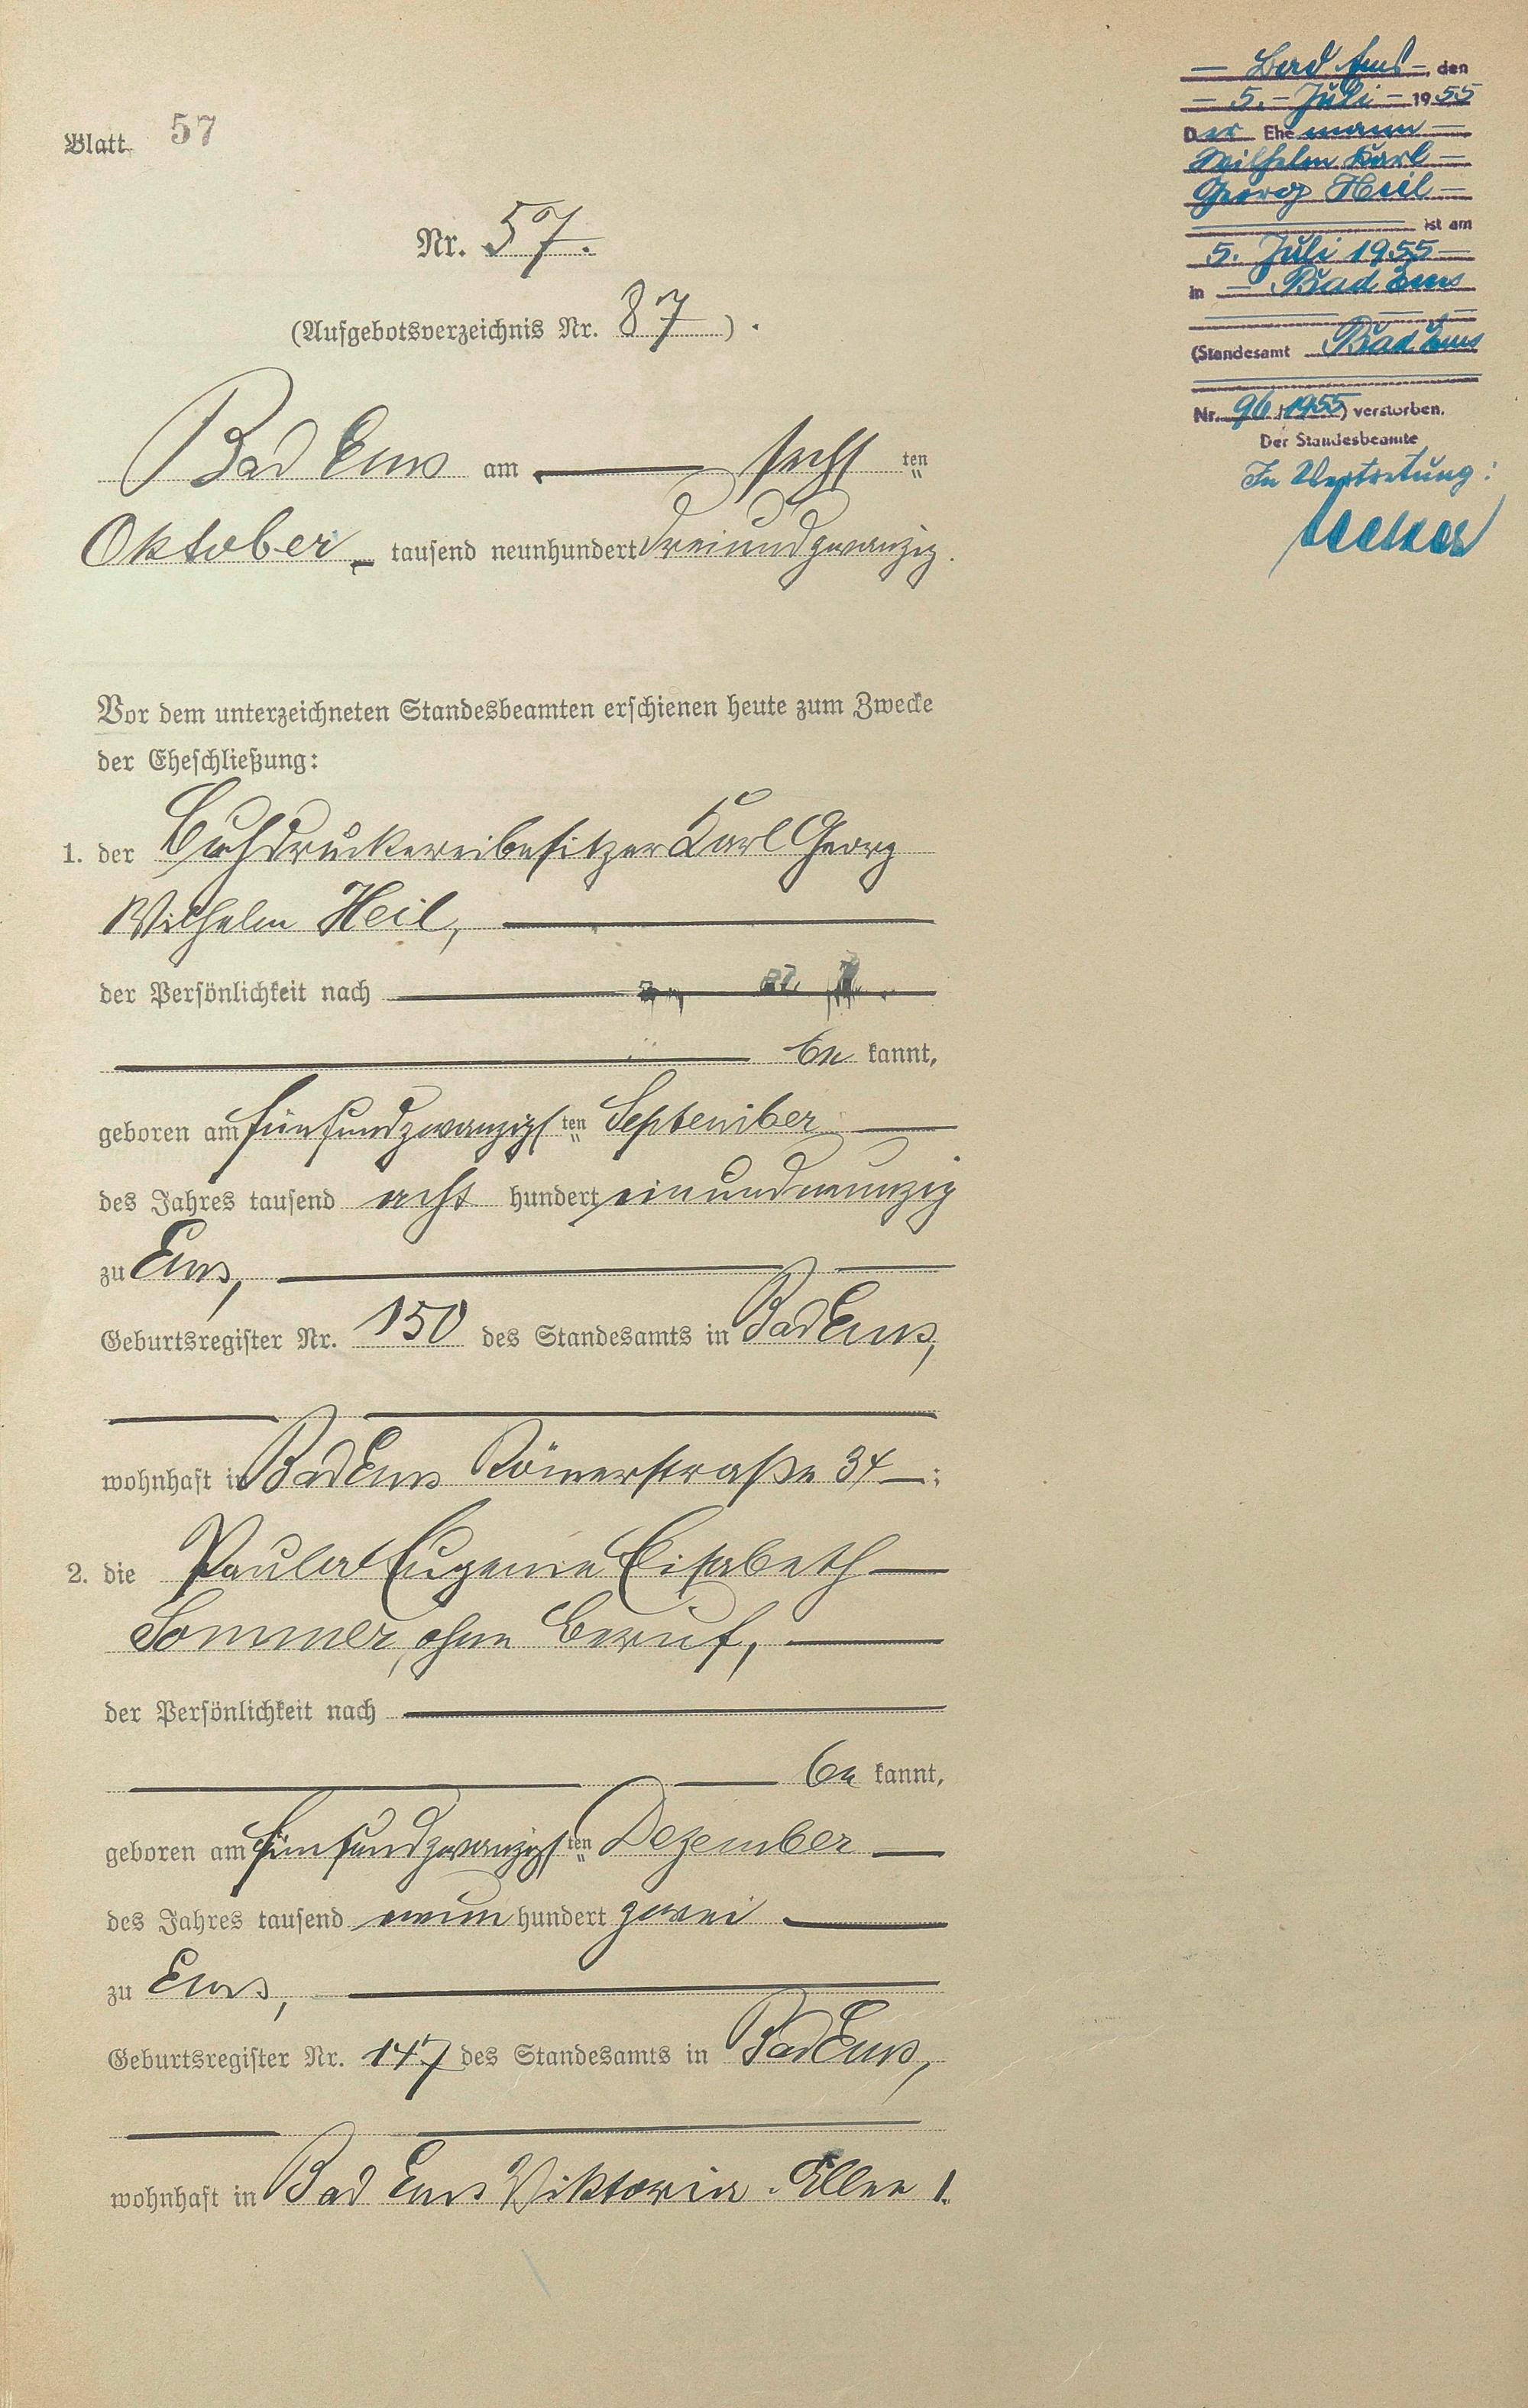 Blatt 57
Nr. 57.
(Aufgebotsverzeichnis Nr. 87).
Bad Ems am sechsten
Oktober tausend neunhundert dreiundzwanzig.
Vor dem unterzeichneten Standesbeamten erschienen heute zum Zwecke
der Eheschließung:
1. der Buchdruckereibesitzer Karl Georg
Wilhelm Heil,
der Persönlichkeit nach
be kannt,
geboren am fünfundzwanzigsten September
des Jahres tausend acht hundert einundneunzig
zu Ems,
Geburtsregister Nr. 150 des Standesamts in Bad Ems,
wohnhaft in Bad Ems Römerstraße 34;
2. die Paula Eugenie Elisabeth
Sommer, ohne Beruf,
der Persönlichkeit nach
be kannt,
geboren am fünfundzwanzigsten Dezember
des Jahres tausend neun hundert zwei
zu Ems,
Geburtsregister Nr. 147 des Standesamts in Bad Ems,
wohnhaft in Bad Ems Viktoria-Allee 1.
– Bad Ems –, den
– 5. – Juli – 1955
Der Ehemann –
Wilhelm Karl –
Georg Heil –
ist am
5. Juli 1955 –
in – Bad Ems
(Standesamt Bad Ems
Nr. 96/1955) verstorben.
Der Standesbeamte
In Vertretung: